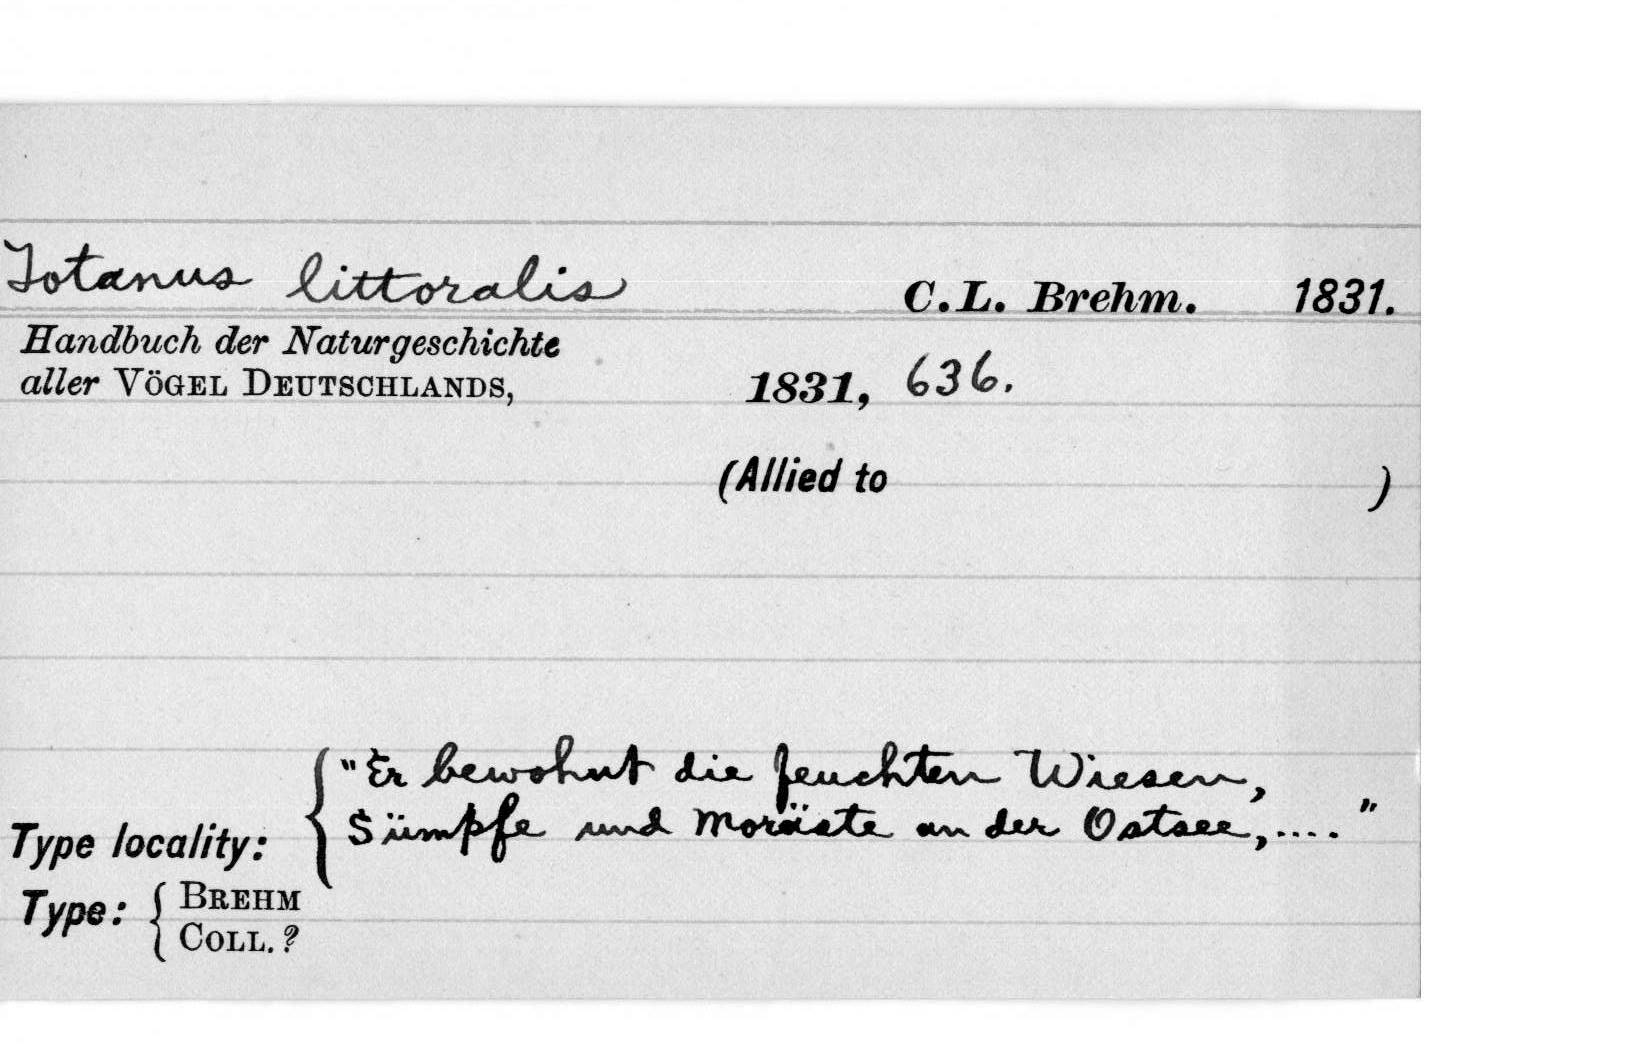 Totanus littoralis C.L. Brehm. 1831.
Handbuch der Naturgeschichte
aller VÖGEL DEUTSCHLANDS, 1831, 636.
(Allied to )
"Er bewohnt die feuchten Wiesen,
Sümpfe und Moräste an der Ostsee,...."
Type locality:
Type: { BREHM
COLL.?